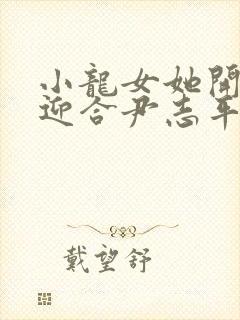 小龍女她開
迎合尹志平
戴望舒